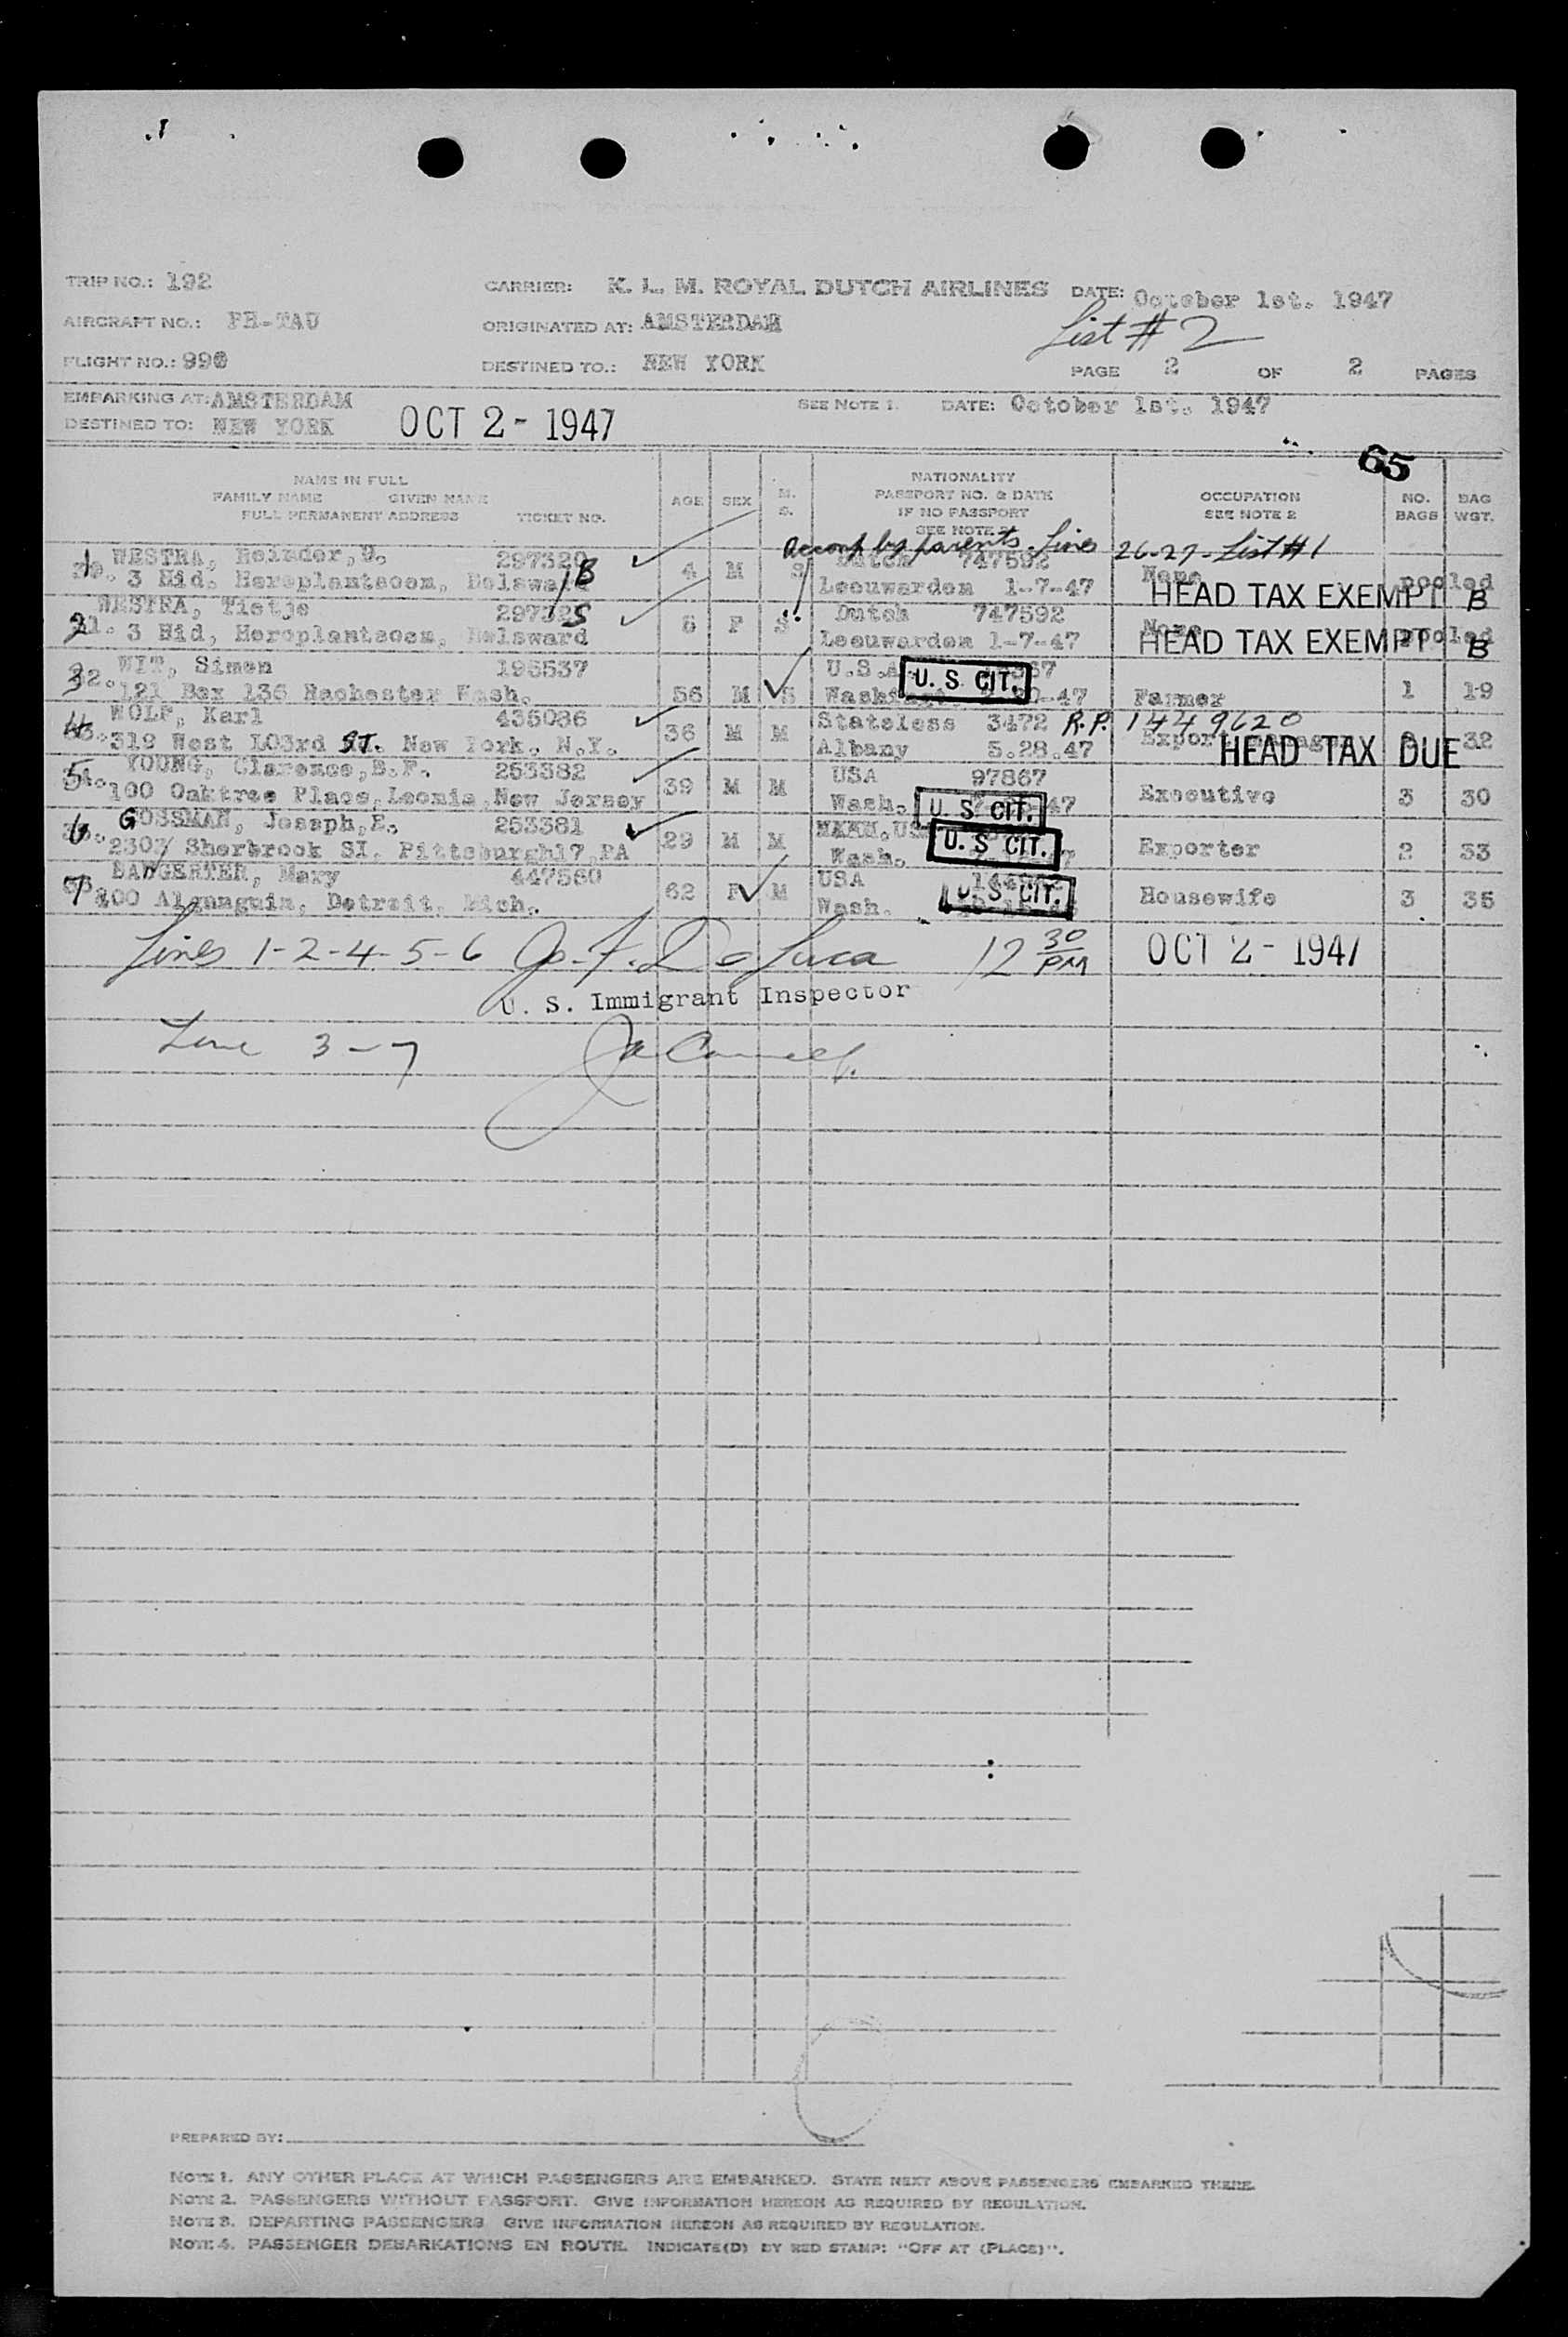 TRIP NO.: 192 CARRIER: K. L. M. ROYAL DUTCH AIRLINES DATE: October 1st. 1947
AIRCRAFT NO.: PH-TAU ORIGINATED AT: AMSTERDAM List # 2
FLIGHT NO.: 990 DESTINED TO.: NEW YORK PAGE 2 OF 2 PAGES
EMBARKING AT: AMSTERDAM SEE NOTE 1. DATE: October 1st. 1947
DESTINED TO: NEW YORK OCT 2 - 1947
65
NAME IN FULL
FAMILY NAME GIVEN NAME
FULL PERMANENT ADDRESS TICKET NO. AGE SEX M. S. NATIONALITY PASSPORT NO. & DATE IF NO PASSPORT SEE NOTE 2 OCCUPATION SEE NOTE 2 NO. BAGS BAG WGT.
Accomp by parents. Lines 26-27-List #1
1 WESTRA, Reinder, 297329 Dutch 747592 None
3 Hid. Heroplantsoen, B 4 M S Leeuwarden 1-7-47 HEAD TAX EXEMPT pooled B
2 WESTRA, Tietje 297328 Dutch 747592 None
3 Hid, Heroplantsoen, Bolsward S 5 F S Leeuwarden 1-7-47 HEAD TAX EXEMPT pooled B
3 WIT, Simon 195537 U.S.A U. S. CIT.
32. 121 Box 136 Rochester Wash. 56 M S -47 Farmer 1 19
4 WOLF, Karl 435086 Stateless 3472 R.P. 1449620
319 West 103rd ST. New York. N.Y. 36 M M Albany 5.28.47 Export HEAD TAX DUE 32
5 YOUNG, Clarence, B.F. 253382 USA 97867
100 Oaktree Place, Leonia, New Jersey 39 M M Wash. U. S. CIT. 47 Executive 3 30
6 GOSSMAN, Joseph, E. 253381
Sherbrook St. Pittsburgh17, PA 29 M M Wash. U. S. CIT. Exporter 2 33
7 BANGERTER, Mary 447560 USA
Detroit, Mich. 62 F M Wash. U. S. CIT. Housewife 3 35
Lines 1-2-4-5-6 Jo. F. De Luca 12 30 PM OCT 2 - 1947
U. S. Immigrant Inspector
Line 3-7
PREPARED BY:
NOTE 1. ANY OTHER PLACE AT WHICH PASSENGERS ARE EMBARKED. STATE NEXT ABOVE PASSENGERS EMBARKED THERE.
NOTE 2. PASSENGERS WITHOUT PASSPORT. GIVE INFORMATION HEREON AS REQUIRED BY REGULATION.
NOTE 3. DEPARTING PASSENGERS GIVE INFORMATION HEREON AS REQUIRED BY REGULATION.
NOTE 4. PASSENGER DEBARKATIONS EN ROUTE. INDICATE(D) BY RED STAMP: "OFF AT (PLACE)".